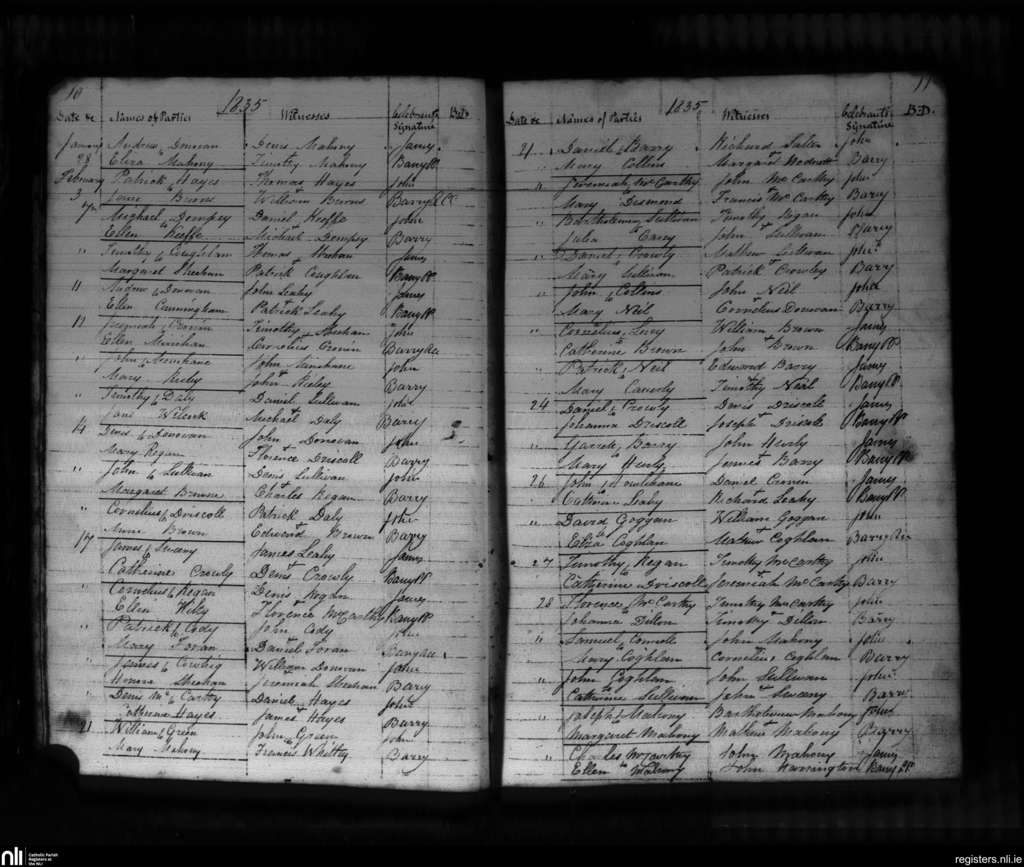 10
1835
Date &c Names of Parties Witnesses Celebrants Signature B.D.
January Andrew Donovan Denis Mahony James
28 Eliza Mahony Timothy Mahony Barry PP
February Patrick Hayes Thomas Hayes John
3 Burns William Burns Barry R.CC
7th Michael Dempsy Daniel Keeffe John
Ellen Keeffe Michael Dempsy Barry
" Timothy to Coughlan Thomas Sheehan James
Margaret Sheehan Patrick Coughlan Barry PP
11 Andrew to Donovan John Leahy James
Ellen Cunningham Patrick Leahy Barry PP
Jeremiah to Cronin Timothy Sheehan John
Ellen Cornelius Cronin Barry
" John to John John
Mary John Barry
" Timothy to Daly Daniel Sullivan John
Jane Michael Daly Barry
14 Denis to Donovan John Donovan John
Mary Regan Florence Driscoll Barry
" John to Sullivan Denis Sullivan John
Margaret Brown Charles Regan Barry
" Cornelius to Driscoll Patrick Daly John
Anne Brown Edward Brown Barry
17 James to Sweeny James Leahy James
Catherine Crowly Denis Crowly Barry PP
" Cornelius to Regan Denis Regan James
Ellen Florence McCarthy Barry PP
" Patrick to Cody John Cody John
Mary Foran Daniel Foran Barry
" James to William Donovan John
Honora Sheehan Jeremiah Sheehan Barry
" Denis Mc Carthy Daniel Hayes John
Catherine Hayes James Hayes Barry
21 William to Green John Green John
Mary Mahony Francis Barry
11
1835
Date &c Names of Parties Witnesses Celebrants Signature B.D.
21 Daniel to Barry Richard John
Mary Collins Margaret Barry
" Jeremiah McCarthy John McCarthy John
Mary Desmond Francis McCarthy Barry
" Bartholomew Sullivan Timothy Regan John
Julia Casey John Sullivan Barry
" Daniel to Crowly Mathew Sullivan John
Mary Sullivan Patrick Crowly Barry
" John to Collins John Neil John
Mary Neil Cornelius Donovan Barry
" Cornelius to Lucy William Brown James
Catherine Brown John Brown Barry PP
" Patrick to Neil Edward Barry James
Mary Timothy Neil Barry PP
24 Daniel to Crowly Denis Driscoll James
Johanna Driscoll Joseph Driscoll Barry PP
" Garrett Barry John Hurly James
Mary Hurly James Barry Barry PP
26 John Daniel Cronin James
Leahy Richard Leahy Barry PP
" David Goggan William Goggan John
Eliza Coghlan Coghlan Barry
27 Timothy to Regan Timothy McCarthy John
Catherine Driscoll Jeremiah McCarthy Barry
28 Florence McCarthy Timothy McCarthy John
Johanna Dillon Timothy Dillon Barry
" Samuel to John Mahony John
Mary Coghlan Cornelius Coghlan Barry
" John to Coghlan John Sullivan John
Catherine Sullivan John Sweeny Barry
" Joseph to Mahony Bartholomew Mahony John
Margaret Mahony Mahony Barry
" Charles McCarthy John Mahony James
Ellen to Mahony John Harrington Barry PP
nli Catholic Parish
Registers at
the NLI
registers.nli.ie